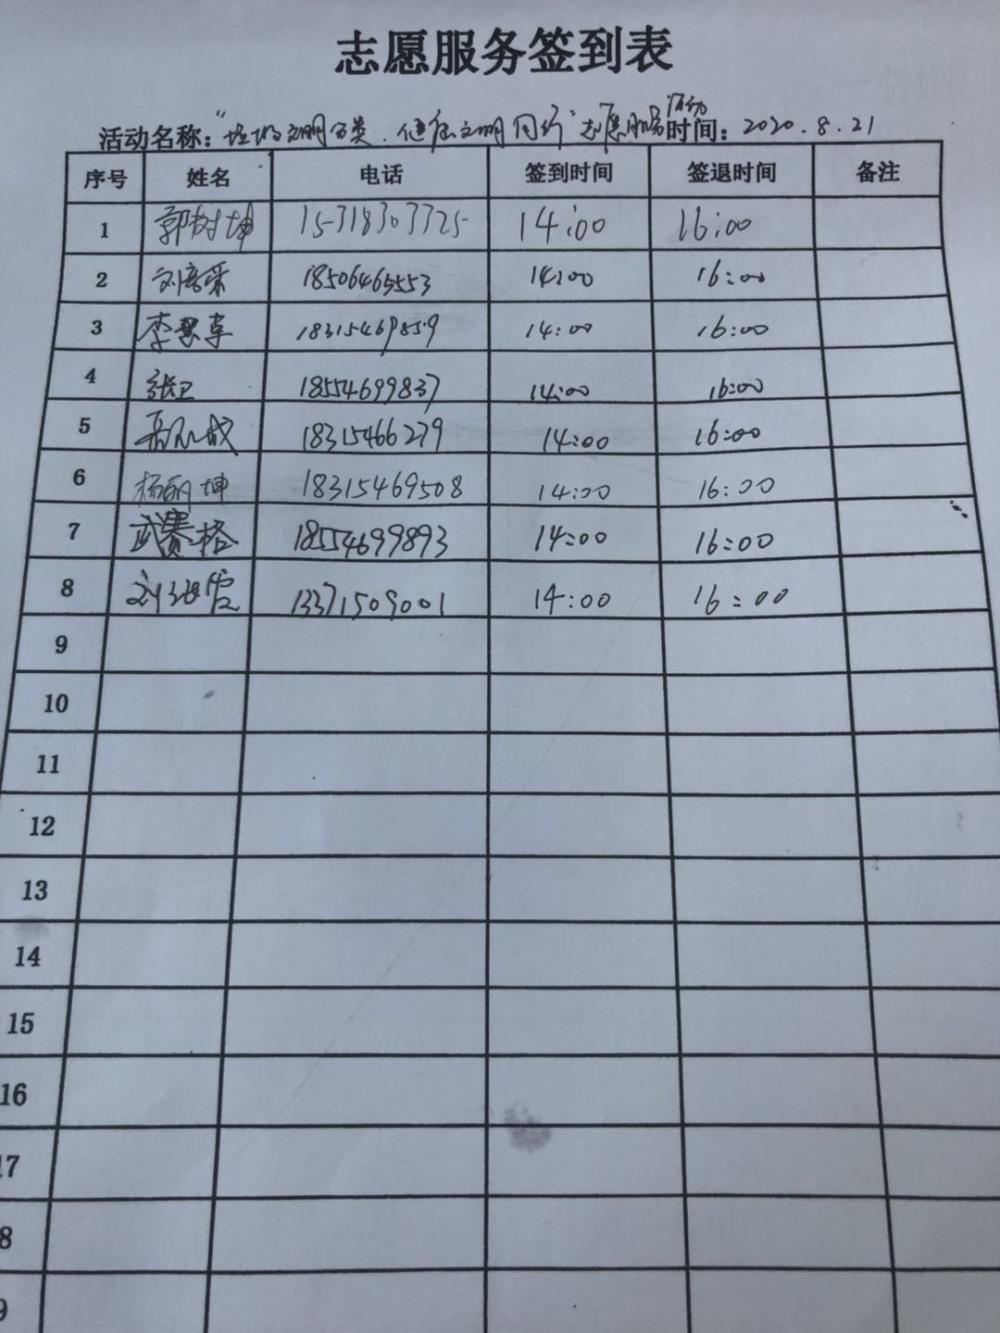 志愿服务签到表
活动名称：“垃圾文明分类·健康文明同行”志愿服务活动 时间：2020.8.21
序号 姓名 电话 签到时间 签退时间 备注
1 郭树坤 15318303325 14:00 16:00
2 18506465553 14:00 16:00
3 李慧草 18315469859 14:00 16:00
4 张卫 18554699837 14:00 16:00
5 18315466279 14:00 16:00
6 杨丽坤 18315469508 14:00 16:00
7 武赛格 18554699893 14:00 16:00
8 13371509001 14:00 16:00
9
10
11
12
13
14
15
16
17
8
9